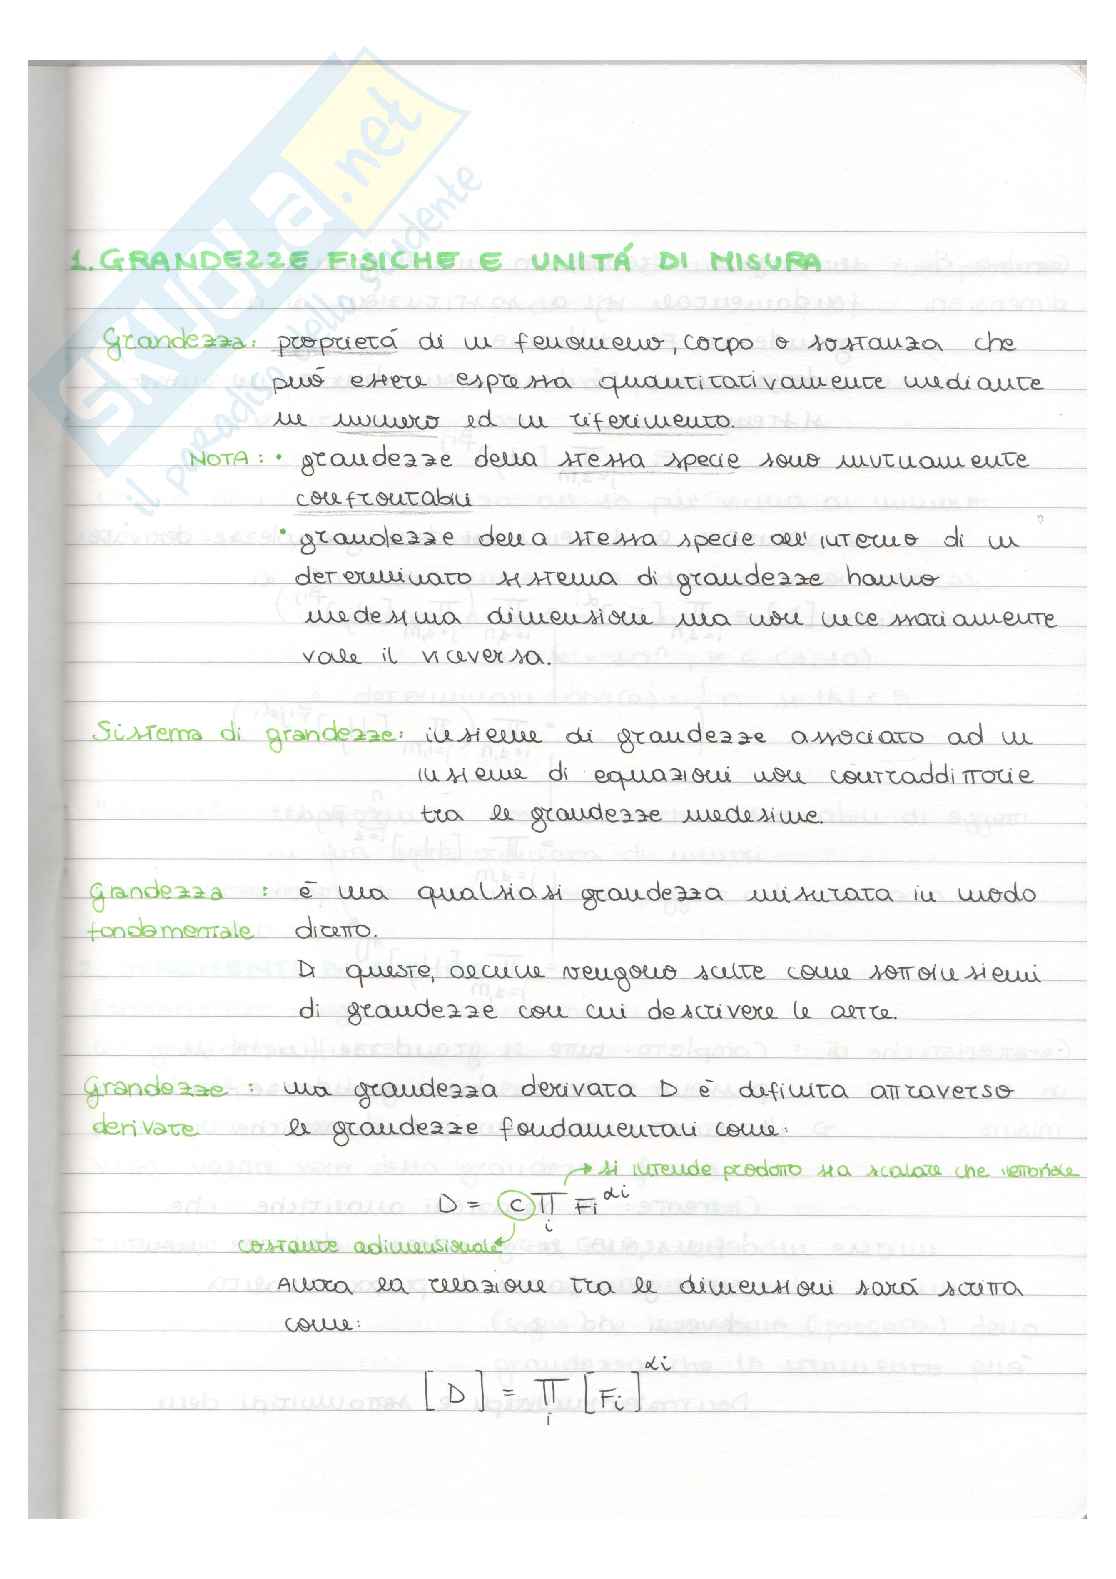 SKUOLA.net
il paradiso dello studente
1. GRANDEZZE FISICHE E UNITÁ DI MISURA
Grandezza: proprietá di un fenomeno, corpo o sostanza che
puó essere espressa quantitativamente mediante
un numero ed un riferimento.
NOTA: • grandezze della stessa specie sono mutuamente
confrontabili
• grandezze della stessa specie all'interno di un
determinato sistema di grandezze hanno
medesima dimensione ma non necessariamente
vale il viceversa.
Sistema di grandezze: insieme di grandezze associato ad un
insieme di equazioni non contraddittorie
tra le grandezze medesime.
Grandezza : é una qualsiasi grandezza misurata in modo
fondamentale diretto.
Di queste, alcune vengono scelte come sottoinsiemi
di grandezze con cui descrivere le altre.
Grandezze : una grandezza derivata D é definita attraverso
derivate le grandezze fondamentali come:
si intende prodotto sia scalare che vettoriale
D = c ∏i Fi^αi
costante adimensionale
Allora la relazione tra le dimensioni sará scritta
come:
[D] = ∏i [Fi]^αi